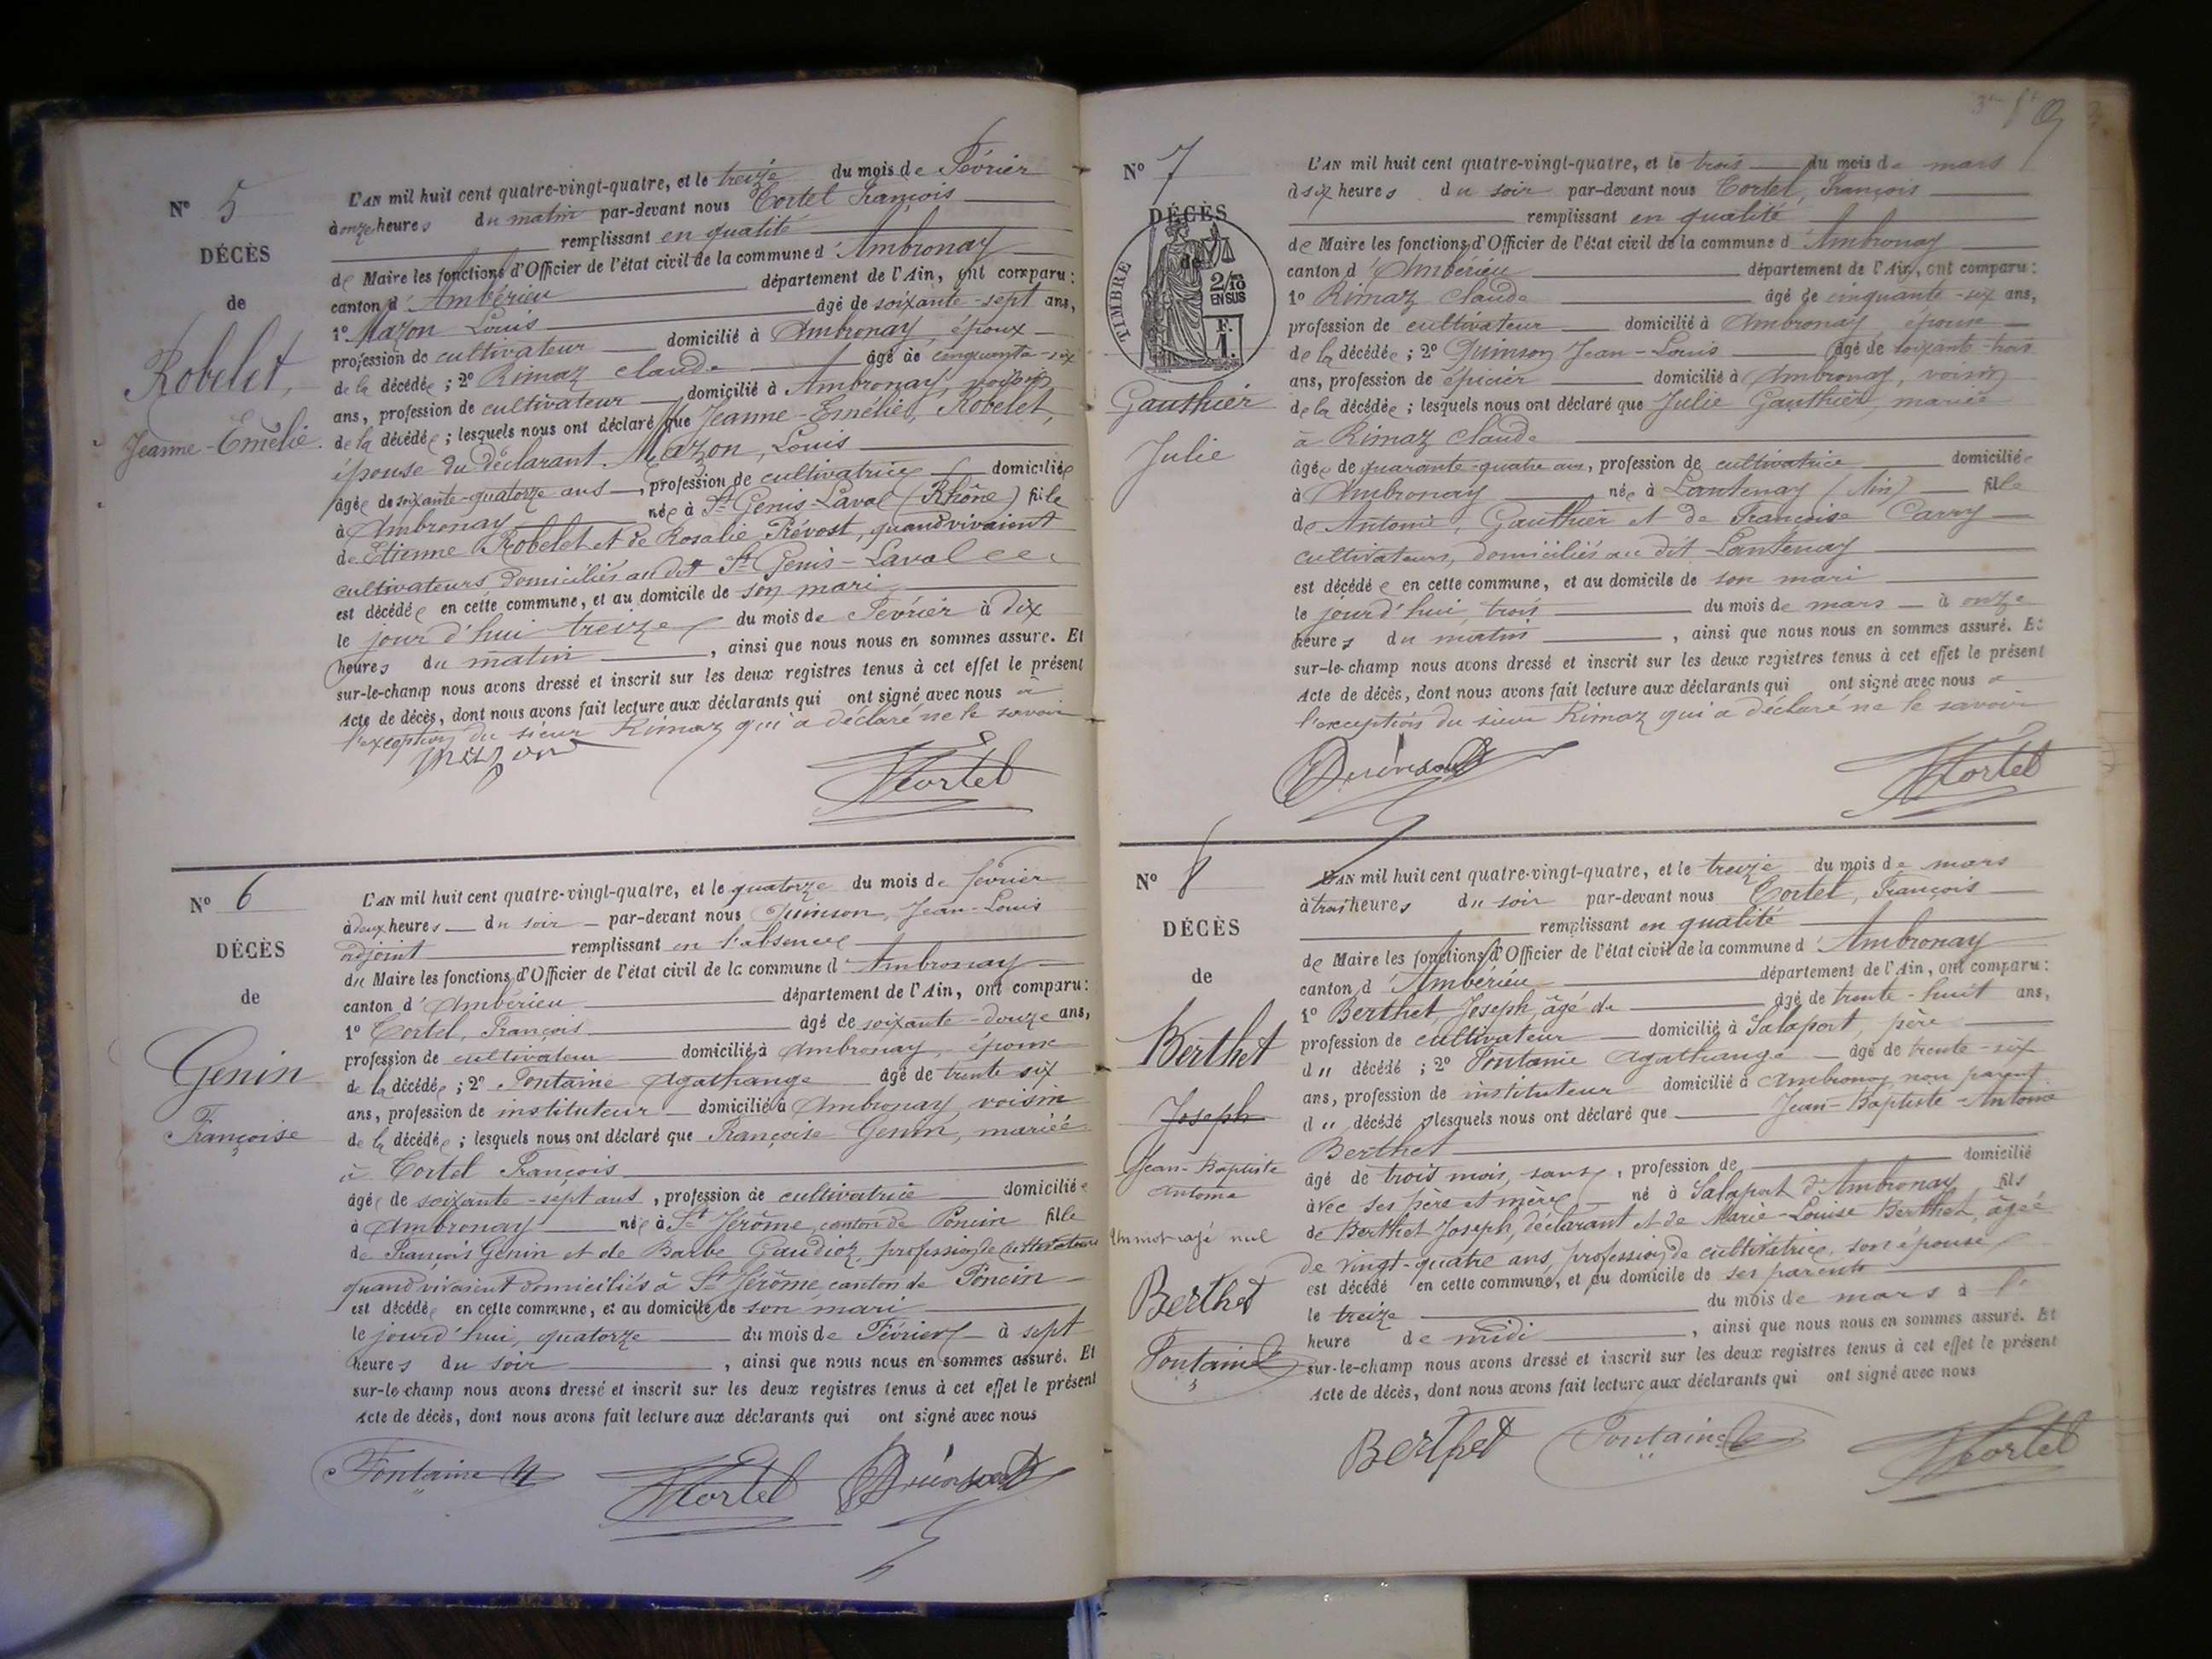 Nº 5
DÉCÈS
de
Robelet,
Jeanne-Emélie.
L'AN mil huit cent quatre-vingt-quatre, et le treize du mois de Février
à onze heures du matin par-devant nous Cortel François
remplissant en qualité
de Maire les fonctions d'Officier de l'état civil de la commune d'Ambronay
canton d'Ambérieu département de l'Ain, ont comparu :
1º Mazon Louis âgé de soixante-sept ans,
profession de cultivateur domicilié à Ambronay, époux
de la décédée ; 2º Rimaz Claude âgé de cinquante-six
ans, profession de cultivateur domicilié à Ambronay, voisin
de la décédée ; lesquels nous ont déclaré que Jeanne-Emélie, Robelet,
épouse du déclarant Mazon, Louis
âgée de soixante-quatorze ans, profession de cultivatrice domiciliée
à Ambronay née à St Genis-Laval (Rhône) fille
de Etienne Robelet et de Rosalie Prévost, quand vivaient
cultivateurs domiciliés au dit St Genis-Laval
est décédée en cette commune, et au domicile de son mari
le jour d'hui treize du mois de Février à dix
heures du matin, ainsi que nous nous en sommes assuré. Et
sur-le-champ nous avons dressé et inscrit sur les deux registres tenus à cet effet le présent
Acte de décès, dont nous avons fait lecture aux déclarants qui ont signé avec nous à
l'exception du sieur Rimaz qui a déclaré ne le savoir
Mazon
Cortel
Nº 6
DÉCÈS
de
Genin
Françoise
L'AN mil huit cent quatre-vingt-quatre, et le quatorze du mois de février
à deux heures du soir par-devant nous Quinson, Jean-Louis
adjoint remplissant en l'absence
du Maire les fonctions d'Officier de l'état civil de la commune d'Ambronay
canton d'Ambérieu département de l'Ain, ont comparu :
1º Cortel, François âgé de soixante-douze ans,
profession de cultivateur domicilié à Ambronay, époux
de la décédée ; 2º Fontaine Agathange âgé de trente six
ans, profession de instituteur domicilié à Ambronay voisin
de la décédée ; lesquels nous ont déclaré que Françoise Genin, mariée
à Cortel François
âgée de soixante-sept ans, profession de cultivatrice domiciliée
à Ambronay née à St Jérôme, canton de Poncin fille
de François Genin et de Barbe Gaudioz, profession de cultivateurs
quand vivaient domiciliés à St Jérôme, canton de Poncin
est décédée en cette commune, et au domicile de son mari
le jourd'hui, quatorze du mois de Février à sept
heures du soir, ainsi que nous nous en sommes assuré. Et
sur-le-champ nous avons dressé et inscrit sur les deux registres tenus à cet effet le présent
Acte de décès, dont nous avons fait lecture aux déclarants qui ont signé avec nous
Fontaine A
Cortel
Quinson
Nº 7
DÉCÈS
de
TIMBRE
2/10
EN SUS
F.
1.
Gauthier
Julie
L'AN mil huit cent quatre-vingt-quatre, et le trois du mois de mars
à six heures du soir par-devant nous Cortel, François
remplissant en qualité
de Maire les fonctions d'Officier de l'état civil de la commune d'Ambronay
canton d'Ambérieu département de l'Ain, ont comparu :
1º Rimaz Claude âgé de cinquante-six ans,
profession de cultivateur domicilié à Ambronay époux
de la décédée ; 2º Quinson Jean-Louis âgé de soixante-trois
ans, profession de épicier domicilié à Ambronay, voisin
de la décédée ; lesquels nous ont déclaré que Julie Gauthier, mariée
à Rimaz Claude
âgée de quarante-quatre ans, profession de cultivatrice domiciliée
à Ambronay née à Lantenay (Ain) fille
de Antoine, Gauthier et de Françoise Carry
cultivateurs, domiciliés au dit Lantenay
est décédée en cette commune, et au domicile de son mari
le jourd'hui, trois du mois de mars à onze
heures du matin, ainsi que nous nous en sommes assuré. Et
sur-le-champ nous avons dressé et inscrit sur les deux registres tenus à cet effet le présent
Acte de décès, dont nous avons fait lecture aux déclarants qui ont signé avec nous à
l'exception du sieur Rimaz qui a déclaré ne le savoir
Quinson
Cortel
Nº 8
DÉCÈS
de
Berthet
Joseph
Jean-Baptiste
Antoine
Un mot rayé nul
Berthet
Fontaine
L'AN mil huit cent quatre-vingt-quatre, et le treize du mois de mars
à trois heures du soir par-devant nous Cortel, François
remplissant en qualité
de Maire les fonctions d'Officier de l'état civil de la commune d'Ambronay
canton d'Ambérieu département de l'Ain, ont comparu :
1º Berthet, Joseph, âgé de âgé de trente-huit ans,
profession de cultivateur domicilié à Salaport, père
du décédé ; 2º Fontaine Agathange âgé de trente-six
ans, profession de instituteur domicilié à Ambronay non parent
du décédé lesquels nous ont déclaré que Jean-Baptiste-Antoine
Berthet
âgé de trois mois, sans, profession de domicilié
avec ses père et mère né à Salaport d'Ambronay fils
de Berthet Joseph, déclarant et de Marie-Louise Berthet, âgée
de vingt-quatre ans, profession de cultivatrice, son épouse
est décédé en cette commune, et au domicile de ses parents
le treize du mois de mars à l'
heure de midi, ainsi que nous nous en sommes assuré. Et
sur-le-champ nous avons dressé et inscrit sur les deux registres tenus à cet effet le présent
Acte de décès, dont nous avons fait lecture aux déclarants qui ont signé avec nous
Berthet
Fontaine
Cortel